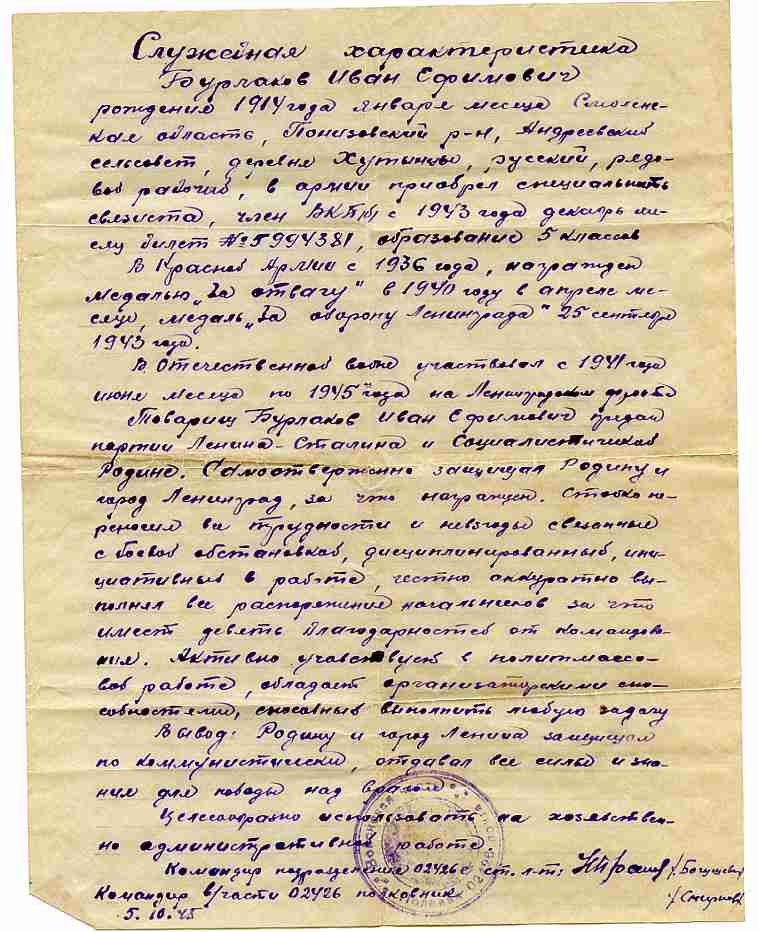 Служебная характеристика
Бурлаков Иван Ефимович
рождения 1914 года января месяца Смолен-
ская область, Понизовский р-н, Андреевский
сельсовет, деревня Хутынцы, русский, рядо-
вой рабочий, в армии приобрел специальность
связиста, член ВКП(б) с 1943 года декабрь ме-
сяц билет № 5994381, образование 5 классов
В Красной Армии с 1936 года, награжден
медалью „За отвагу" в 1940 году в апреле ме-
сяце, медаль „За оборону Ленинграда" 25 сентября
1943 года.
В Отечественной войне участвовал с 1941 года
июня месяца по 1945 года на Ленинградском фронте
Товарищ Бурлаков Иван Ефимович предан
партии Ленина-Сталина и Социалистической
Родине. Самоотверженно защищал Родину и
город Ленинград, за что награжден. Стойко пе-
реносил все трудности и невзгоды связанные
с боевой обстановкой, дисциплинированный, ини-
циативный в работе, честно аккуратно вы-
полнял все распоряжение начальников за что
имеет девять благодарностей от командова-
ния. Активно участвует в политмассо-
вой работе, обладает организаторскими спо-
собностями, способный выполнить любую задачу
Вывод: Родину и город Ленина защищал
по коммунистически, отдавал все силы и зна-
ния для победы над врагом
Целесообразно использовать на хозяйствен-
но административной работе
Командир подразделения 02426 с ст. л-т:
Командир в/части 02426 полковник /Смирнов
5.10.45